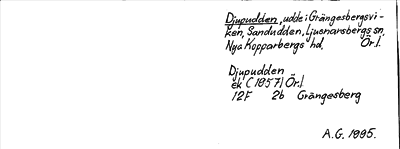 Djupudden, udde i Grängesbergsvi-
ken, Sandudden, Ljusnarsbergs sn,
Nya Kopparbergs hd. Ör.l.
Djupudden
ek (1957) Ör.l.
12F 2b Grängesberg
A.G. 1995.